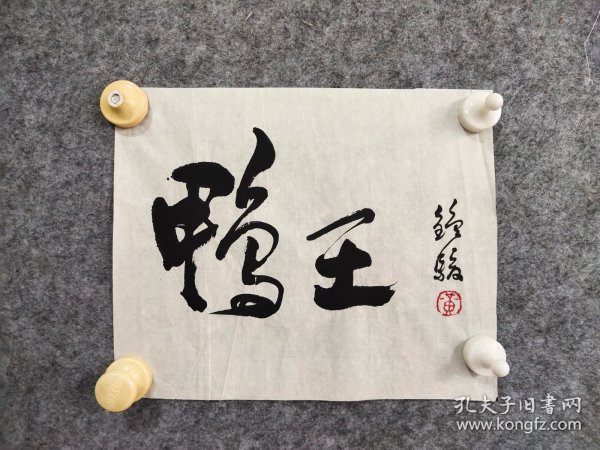 鸭王
鐘駿
黄
孔夫子旧書网
www.kongfz.com